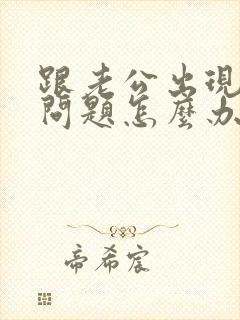 跟老公出現
問題怎麼办
帝希宸